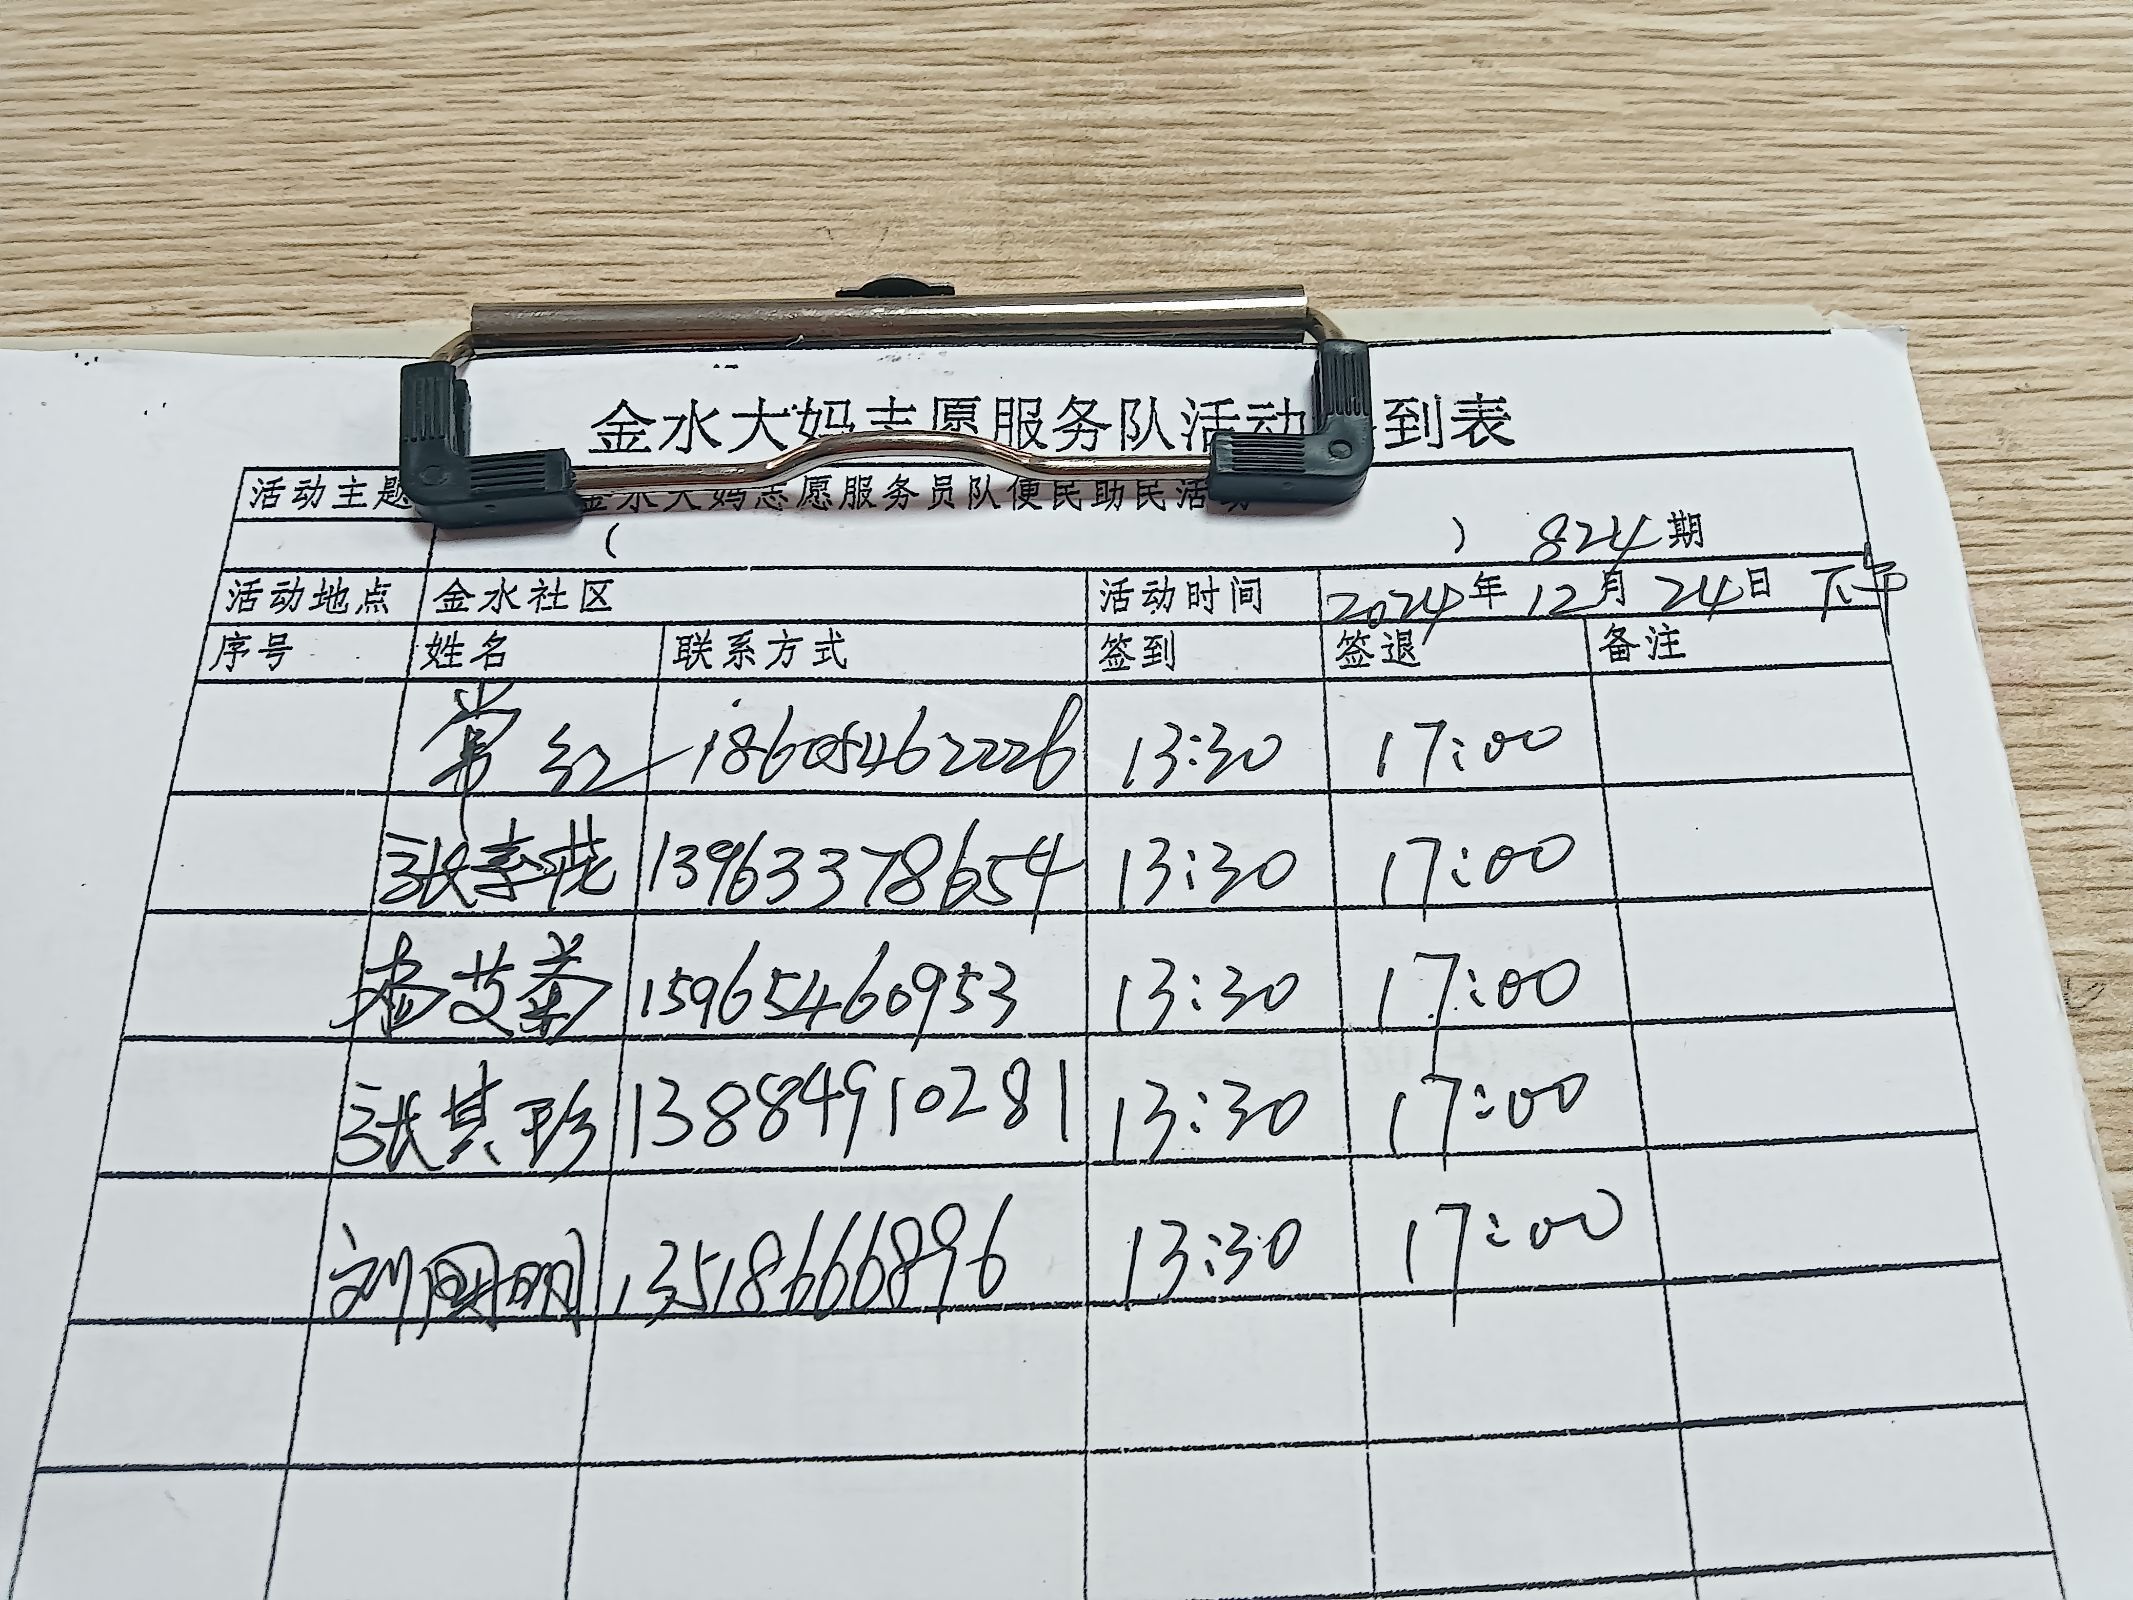 金水大妈志愿服务队活动 到表
活动主题 金水大妈志愿服务员队便民助民活动
( ) 824期
活动地点 金水社区 活动时间 2024年12月24日 下午
序号 姓名 联系方式 签到 签退 备注
常红 18605462226 13:30 17:00
张秀花 13963378654 13:30 17:00
杨艾菊 15965460953 13:30 17:00
张其珍 13884910281 13:30 17:00
刘国明 13518666896 13:30 17:00